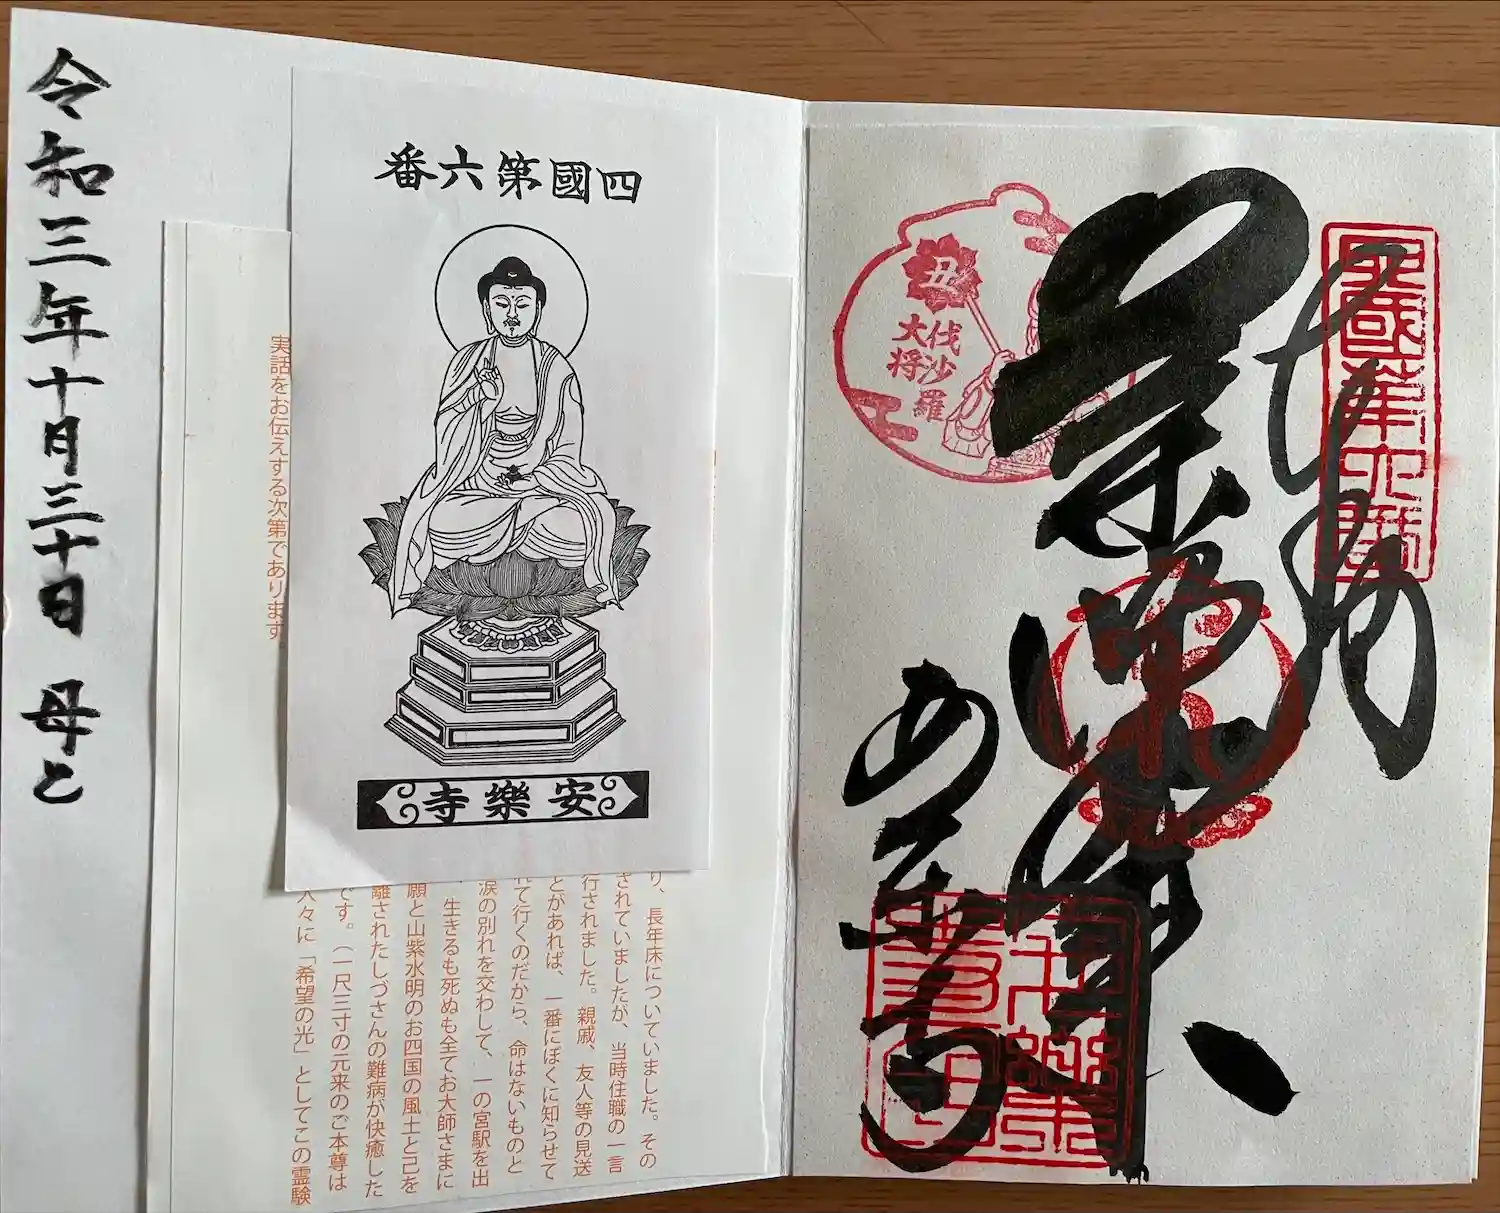 四國第六番
奉納
薬師如来
安楽寺
丑
伐沙羅
大将
四國第六番
安樂寺
り、長年床についていました。その
されていましたが、当時住職の一言
行されました。親戚、友人等の見送
とがあれば、一番にぼくに知らせて
れて行くのだから、命はないものと
涙の別れを交わして、一の宮駅を出
生きるも死ぬも全てお大師さまに
願と山紫水明のお四国の風土と己を
離されたしづさんの難病が快癒した
です。（一尺三寸の元来のご本尊は
人々に「希望の光」としてこの霊験
実話をお伝えする次第であります。
令和三年十月三十日 母と